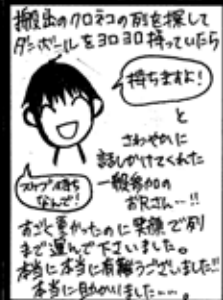 搬出のクロネコの列を探して
ダンボールをヨロヨロ持っていたら
持ちますよ!
と
さわやかに
話しかけてくれた
一般参加の
お兄さん…!!
スケブ待ち
なんで!
すごく重かったのに笑顔で列
まで運んで下さいました。
本当に本当に有難うございました!!
本当に助かりました…。